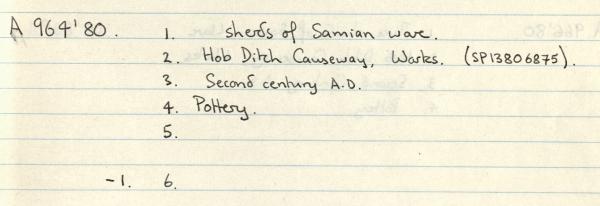 A 964'80. 1. sherds of Samian ware.
2. Hob Ditch Causeway, Warks. (SP13806875).
3. Second century A.D.
4. Pottery.
5.
-1. 6.